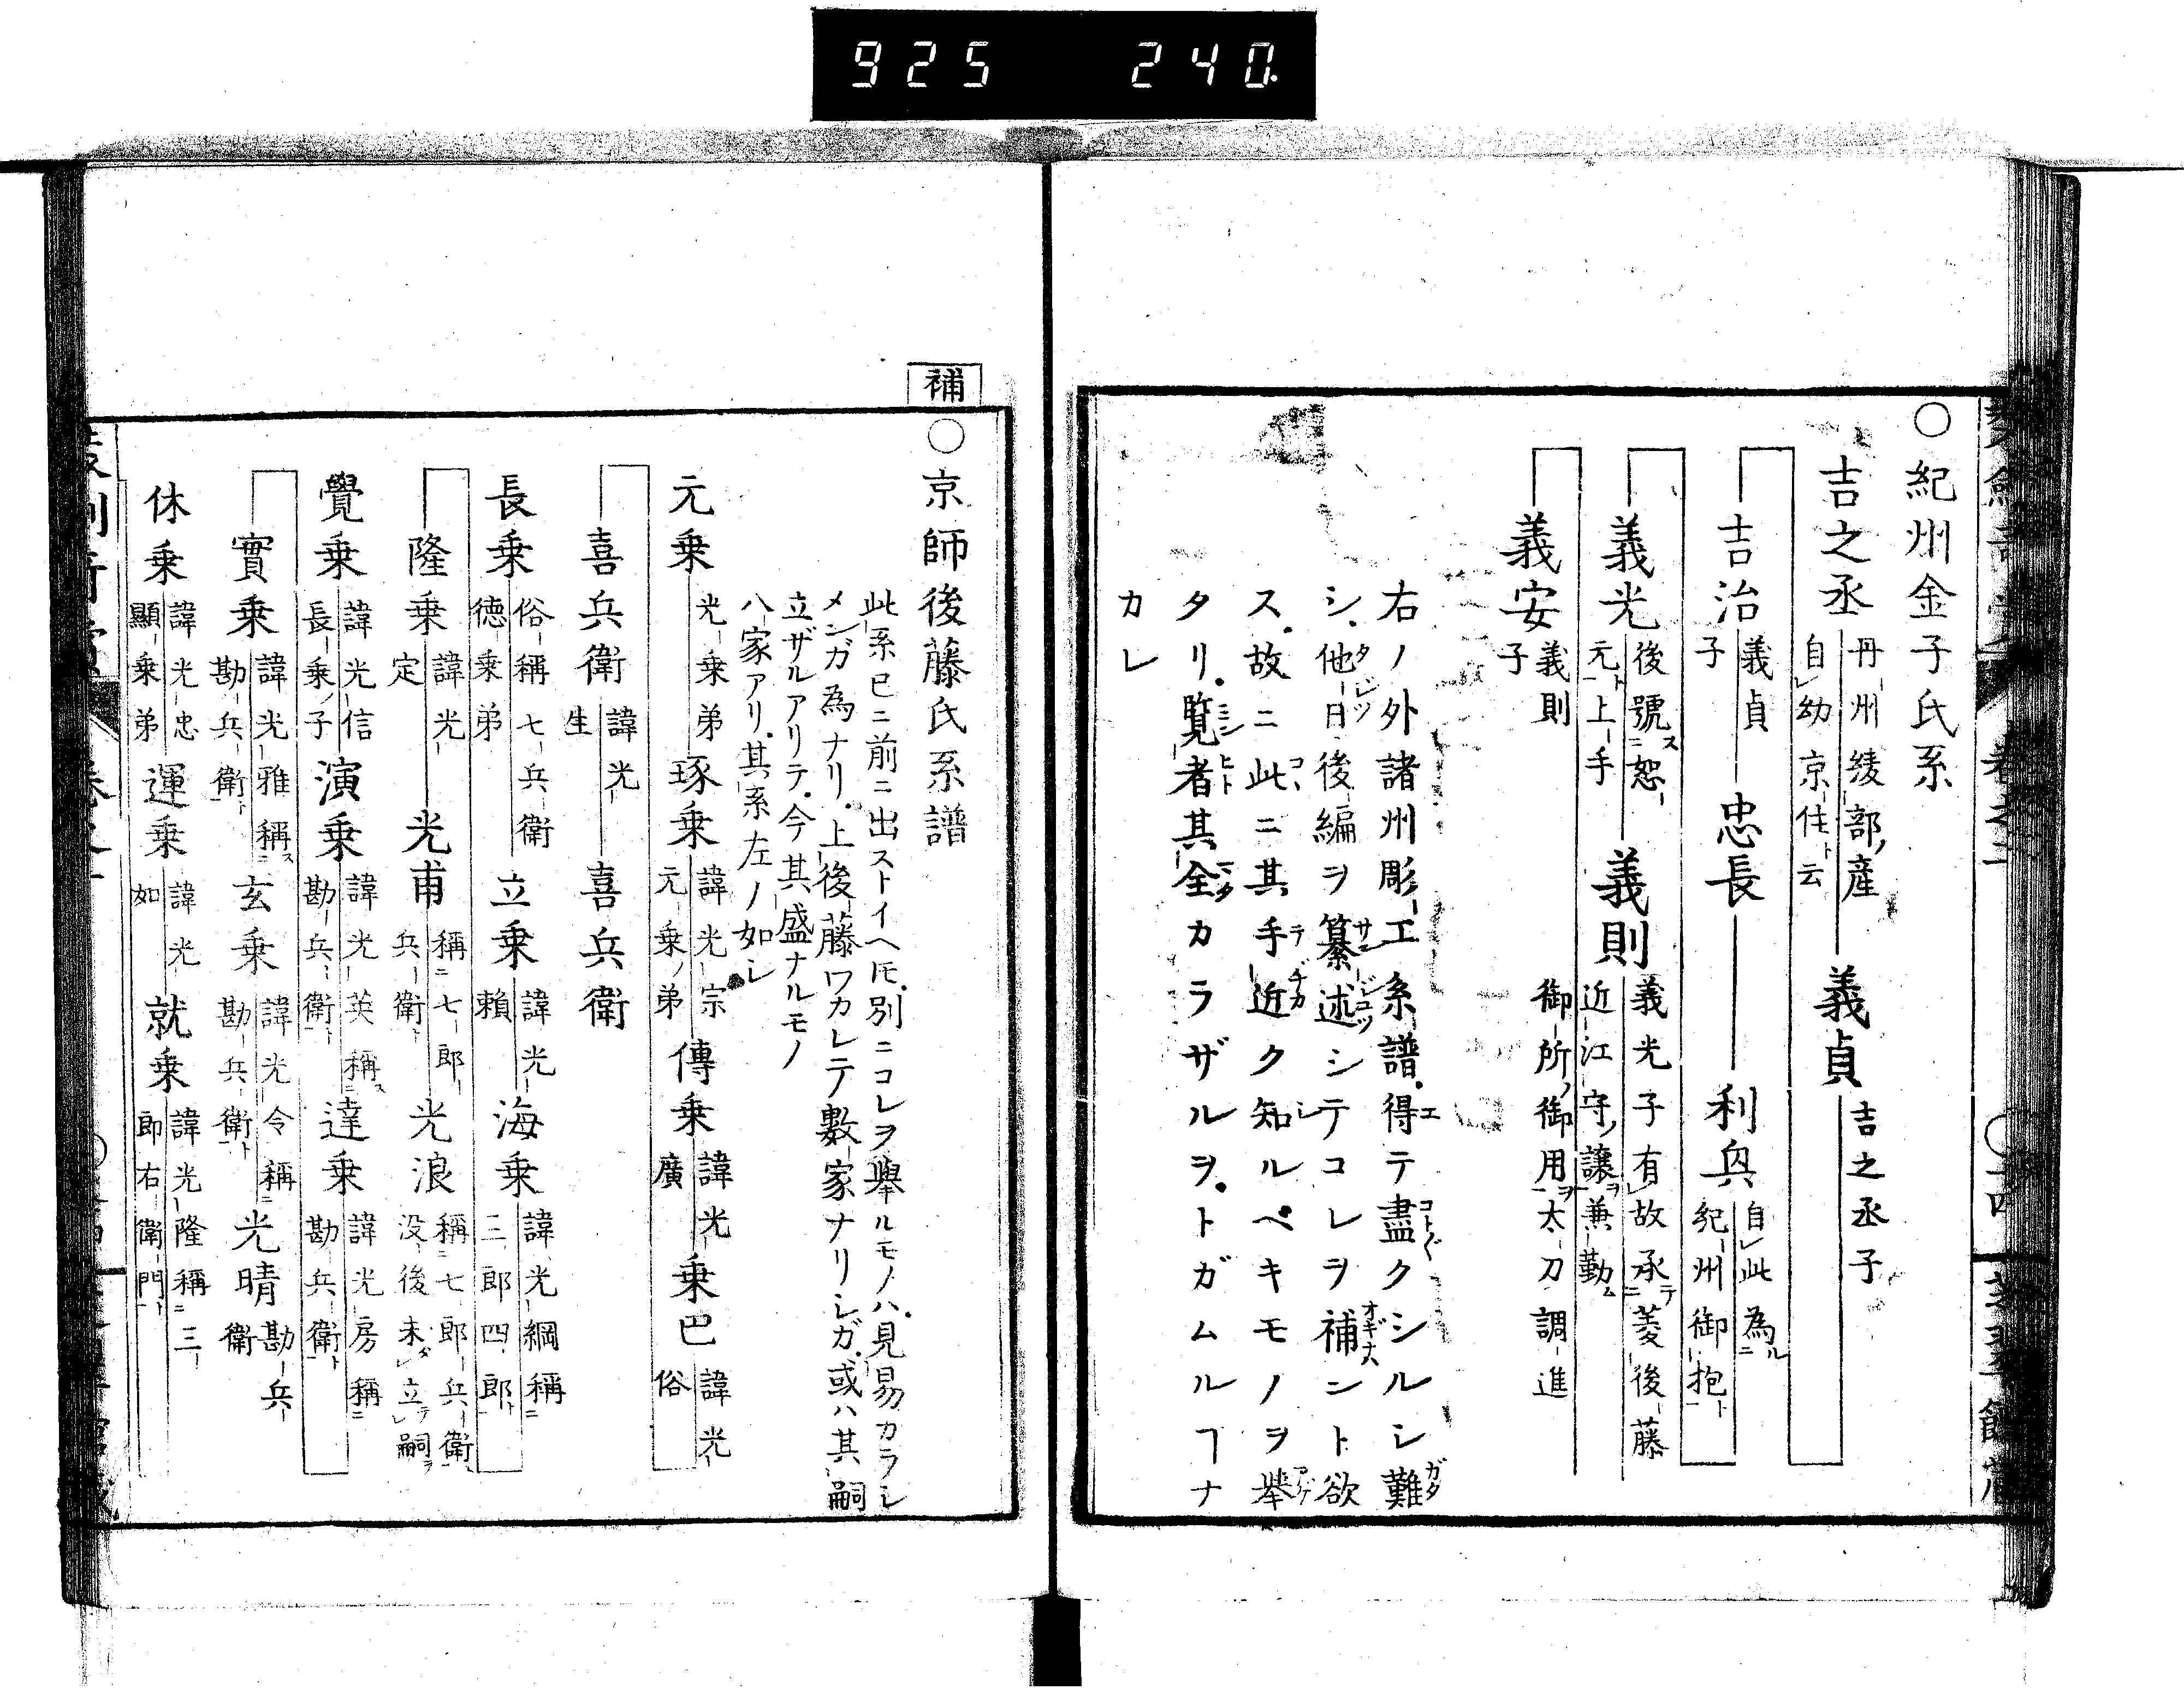 925 240
○紀州金子氏系
吉之丞 丹州綾部ノ産 自レ幼京住ト云 義貞 吉之丞子
吉治 義貞子 忠長 利與 自レ此為ル二紀州御抱ト一
義光 後號ス二恕元ト一上手 義則 義光子有レ故承テ二菱後藤近江守ノ譲ヲ一兼勤ム 御所ノ御用ヲ一太刀調進
義安 義則子
右ノ外諸州彫工系譜得テ盡クシルシ難
シ他日後編ヲ纂述シテコレヲ補ント欲
ス故ニ此ニ其手近ク知ルベキモノヲ擧
タリ覧者其全カラザルヲトガムルヿナ
カレ
補
○京師後藤氏系譜
此系已ニ前ニ出ストイヘ𪜈別ニコレヲ擧ルモノハ見易カラシ
メンガ為ナリ上後藤ワカレテ數家ナリシガ或ハ其嗣
立ザルアリテ今其盛ナルモノ
八家アリ其系左ノ如シ
元乗 光乗弟 琢乗 諱光宗 元乗ノ弟 傳乗 諱光廣 乗巴 諱光俗
喜兵衛 諱光生 喜兵衛
長乗 俗稱七兵衛 徳乗弟 立乗 諱光頼 海乗 諱光綱稱二三郎四郎ト一
隆乗 諱光定 光甫 稱二七郎兵衛ト一 光浪 稱二七郎兵衛ト一没後未ダレ立テレ嗣ヲ
覺乗 諱光信 長乗ノ子 演乗 諱光英稱ス二勘兵衛ト一 達乗 諱光房稱二勘兵衛ト一
實乗 諱光雅稱ス二勘兵衛ト一 玄乗 諱光令稱二勘兵衛ト一 光晴 勘兵衛
休乗 諱光忠 顯乗弟 運乗 諱光如 就乗 諱光隆稱二三郎右衛門ト一